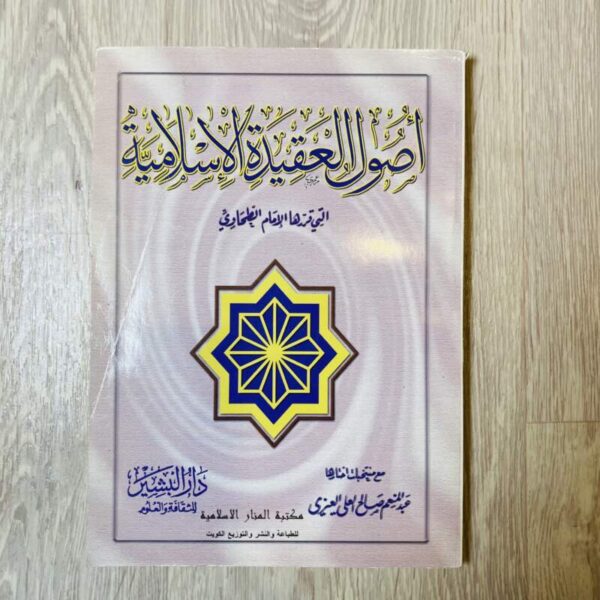 أصول العقيدة الإسلامية
التي قررها الإمام الطحاوي
مع منتخبات اختارها
عبد المنعم صالح العلي العزي
دار البشير
للثقافة والعلوم
مكتبة المنار الاسلامية
للطباعة والنشر والتوزيع الكويت